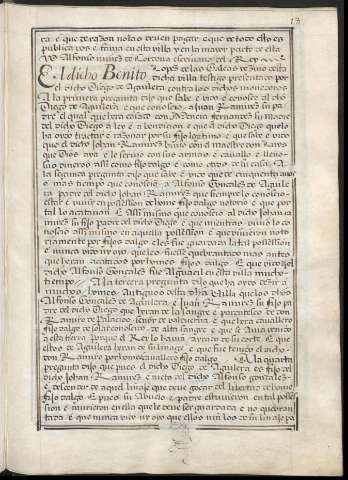 13
ra e que de razon no las deven pagar e que de todo esto es
publica voz e fama en esta villa y en la mayor parte de ella
Alfonso nuñez de escrivano del Rey
El dicho Benito Lopez de las Casas vezino desta
dicha villa testigo presentado por
el dicho Diego de Aguilera contra los dichos
A la primera pregunta dijo que sabe e vio e conosce al dho
Diego de Aguilera e que conosció a Juan Ramires su pa
dre el qual que hera casado con Mencia Fernandes su Madre
del dicho Diego a ley e a bendicion e que al dicho Diego que la
ha ovo tractar e razonar por su fijo legitimo e que sabe e vido
que el dicho Johan Ramires bivio con el maestre don Luys
que Dios aya e le servio con sus armas e cavallo e llevó
su dinero assi como fijo dalgo e como otros de su casa. A
la segunda pregunta dijo que sabe e vido que de cinquenta años
o mas tiempo que conoscio a Alfonso Gonçales de Aguile
ra padre del dicho Johan Ramires que siempre lo conoscio
estar e vivir en possession de home fijo dalgo notorio e que por
tal lo acatavan E assi mismo que conoscio al dicho Johan ra
mires su fijo padre del dicho Diego e que mientras vivio lo co
noscio assi mismo en aquella possession e que vivieron noto
riamente por fijos dalgo e les fue guardada la tal possession
e nunca vido ni oyo que les fuesse quebrantado mas antes
que heran acatados por homes fijos dalgo. E que vido que el
dicho Alfonso Gonçales fue Alguacil en esta villa mucho
tiempo. A la tercera pregunta dijo que ha oydo dezir a
muchos homes Antiguos desta dicha Villa que los dichos
Alfonso Gonçales de Aguilera e Juan Ramires su fijo pa
dre del dicho Diego que heran de la sangre e parentesco de don
Ramiro de Palacios, señor de valdueña e que hera cavallero
fijo dalgo de solar conoscido de alta sangre e que se avia venido
a esta tierra porque el Rey lo havia ayrado de su corte. E que
estos de Aguilera heran de su linage e que fue tenido el dicho
don Ramiro por home cavallero fijo dalgo. A la quarta
pregunta dijo que pues el dicho Diego de Aguilera es fijo del
dicho Johan Ramires e nieto del dicho Alfonso gonçales
e descendie de aquel linage que deve goçar del libertad de home
fijo dalgo E pues su Abuelo e padre estuvieron en tal posses
sion e murieron en ella que le deve ser guardada e no quebran
tada e que nunca vido ni oyo que ellos nin los de su linaje pa